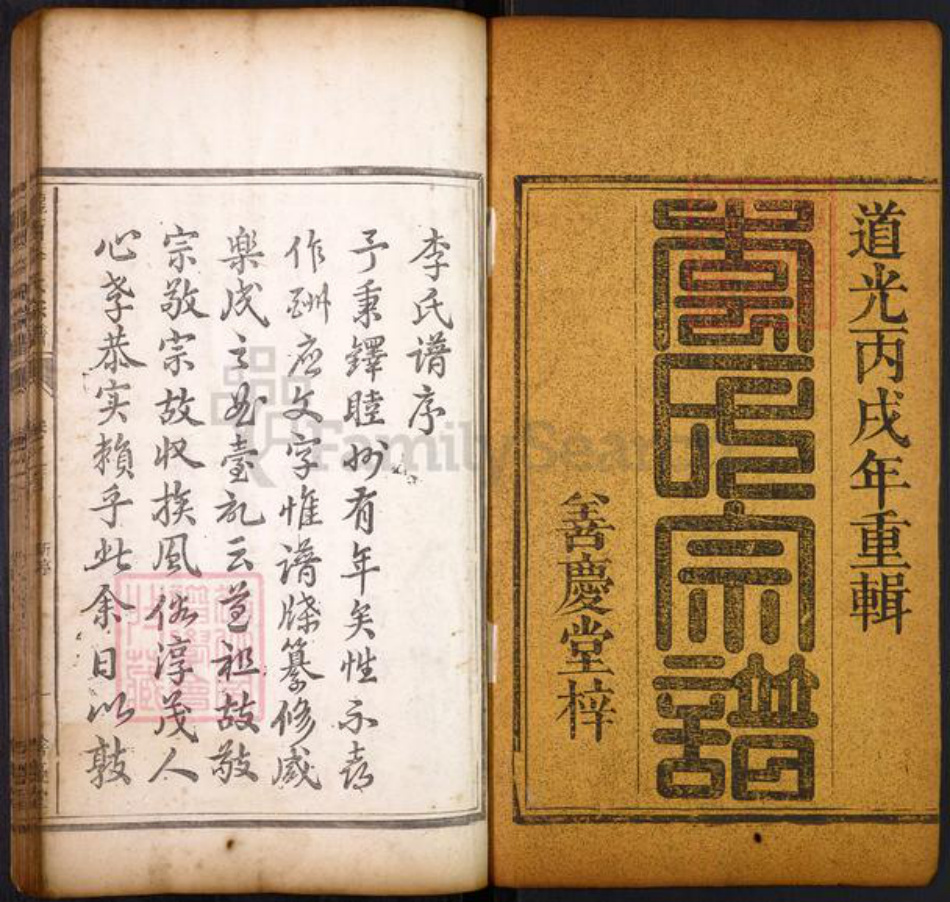 道光丙戌年重輯
李氏宗譜
善慶堂梓
李氏谱序
予秉鐸睦州有年矣性不喜
作酬应文字惟谱牒纂修咸
樂成之 臺 云 祖故敬
宗敬宗故収族风俗淳茂人
心孝恭实賴乎此余日以敦
FamilySearch